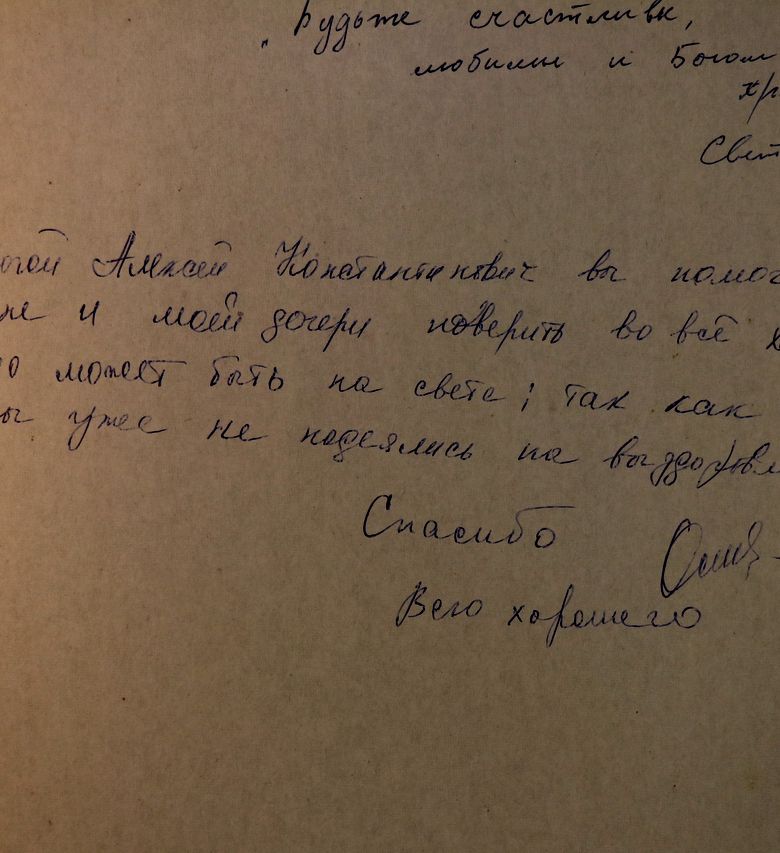 Будьте счастливы,
любимы и Богом
хр
Свет
огой Алексей Константинович вы помог
не и моей дочери поверить во всё х
о может быть на свете; так как
ы уже не надеялись на выздоровл
Спасибо
Всего хорошего